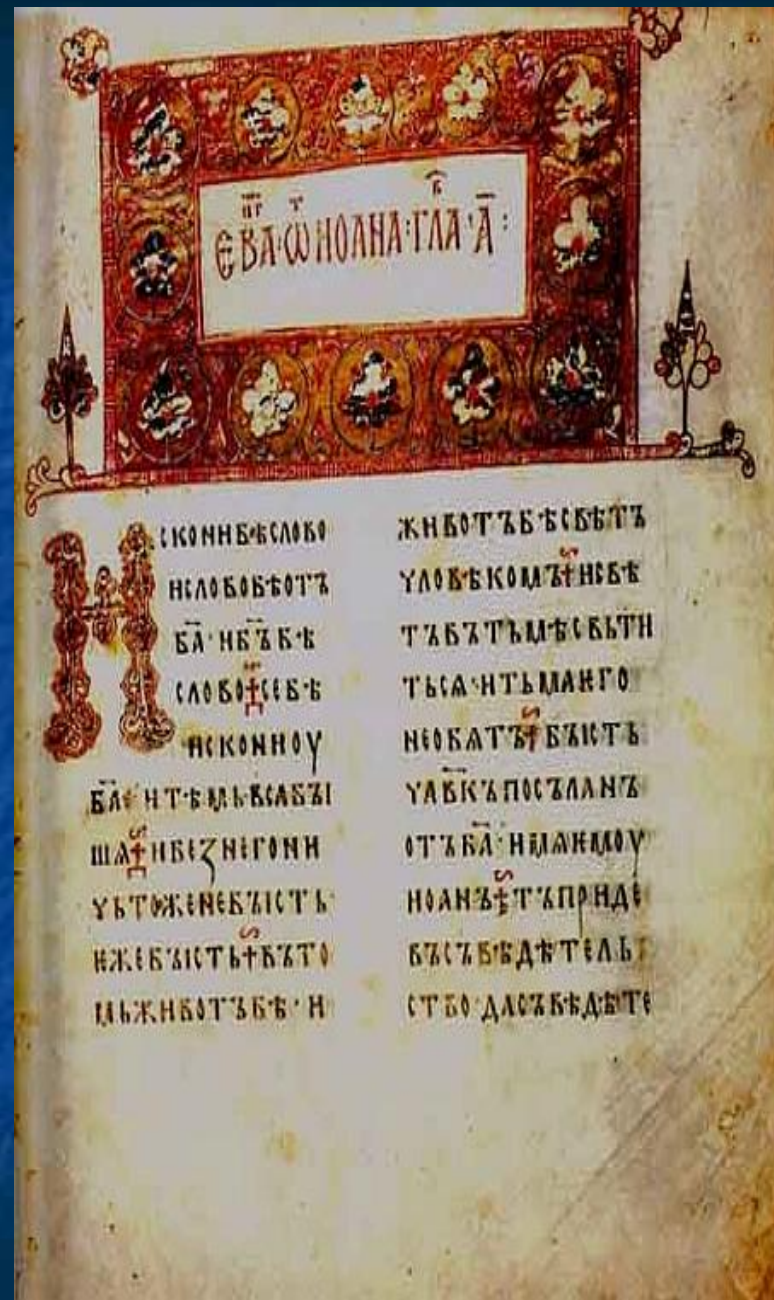 ЄВАНГ·ѾИОАНА·ГЛАВ·А҃:
ИСКОНИБѢСЛОВО
ИСЛОВОБѢОТЪ
Б҃А·ИБ҃ЪБѢ
СЛОВО·СЕБѢ
ИСКОНИОУ
Б҃А·ИТѢМЬВСАБЫ
ШѦ·ИБЕЗНЕГОНИ
ЧЬТОЖЕНЕБЪІСТЬ·
ЕЖЕБЪІСТЬ·ВЪТО
МЬЖИВОТЪБѢ·И
ЖИВОТЪБѢСВѢТЪ
ЧЛОВѢКОМЪ·ИСВѢ
ТЪВЪТЬМѢСВЬТИ
ТЬСѦ·ИТЬМАѤГО
НЕОБѦТЪ·БЪІСТЬ
ЧЛ҃ВКЪПОСЪЛАНЪ
ОТЪБ҃А·ИМѦѤМОУ
ИОАНЪ·ТЪПРИДЕ
ВЪСЪВѢДѢТЕЛЬ
СТВО·ДАСЪВѢДѢТЕ